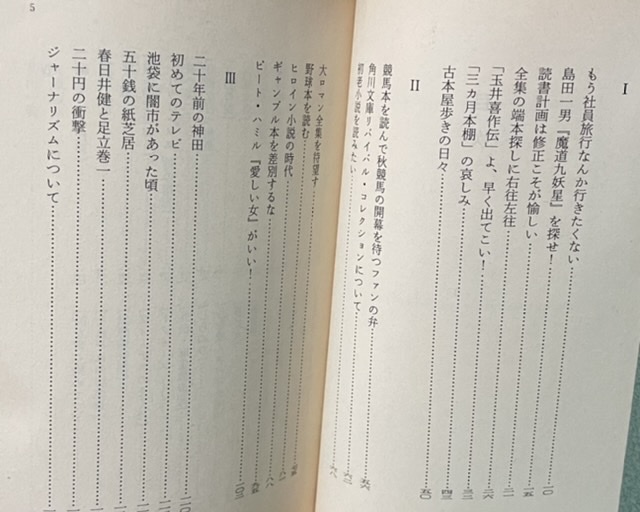 I
もう社員旅行なんか行きたくない
島田一男『魔道九妖星』を探せ!……一〇
読書計画は修正こそが愉しい……一五
全集の端本探しに右往左往……二一
「玉井喜作伝」よ、早く出てこい!……二六
「三ヵ月本棚」の哀しみ……三三
古本屋歩きの日々……四三
五〇
II
競馬本を読んで秋競馬の開幕を待つファンの弁……五六
角川文庫リバイバル・コレクションについて……六二
初老小説を読みたい……六八
大ロマン全集を待望す
野球本を読む
ヒロイン小説の時代
ギャンブル本を差別するな……八八
ピート・ハミル『愛しい女』がいい!
III
二十年前の神田
初めてのテレビ
池袋に闇市があった頃
五十銭の紙芝居
春日井健と足立巻一
二十円の衝撃
ジャーナリズムについて
5